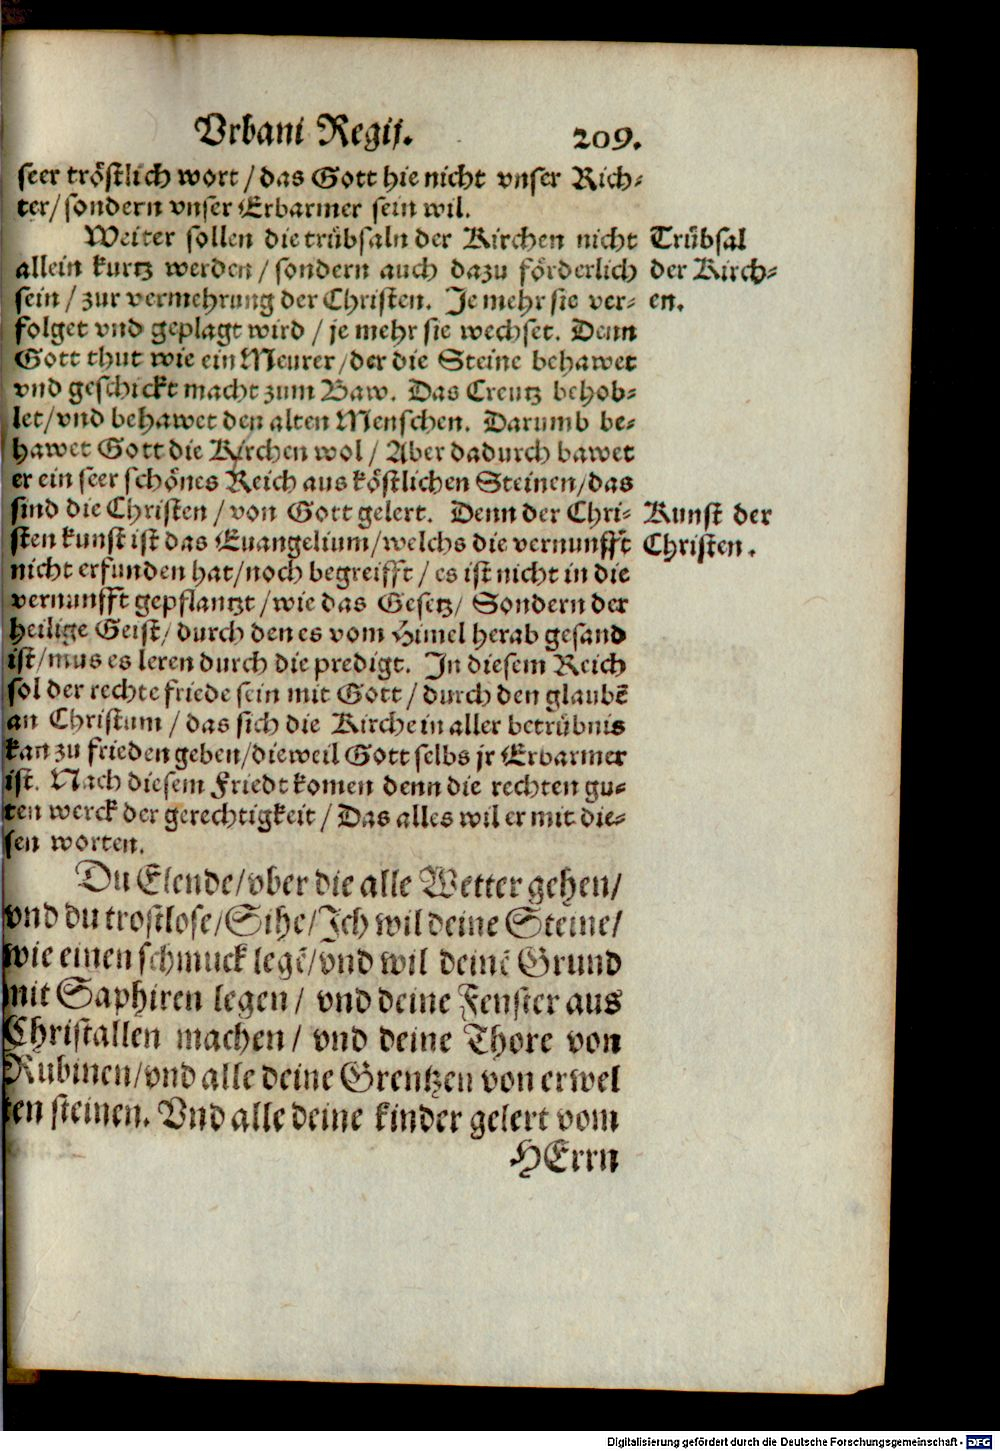 Vrbani Regij. 209.
seer tröstlich wort / das Gott hie nicht vnser Rich-
ter / sondern vnser Erbarmer sein wil.
Weiter sollen die trübsaln der Kirchen nicht
Trübsal
allein kurtz werden / sondern auch dazu förderlich
der Kirch-
sein / zur vermehrung der Christen. Je mehr sie ver-
en.
folget vnd geplagt wird / je mehr sie wechset. Denn
Gott thut wie ein Meurer / der die Steine behawet
vnd geschickt macht zum Baw. Das Creutz behob-
let / vnd behawet den alten Menschen. Darumb be-
hawet Gott die Kirchen wol / Aber dadurch bawet
er ein seer schönes Reich aus köstlichen Steinen / das
sind die Christen / von Gott gelert. Denn der Chri-
Kunst der
sten kunst ist das Euangelium / welchs die vernunfft
Christen.
nicht erfunden hat / noch begreifft / es ist nicht in die
vernunfft gepflantzt / wie das Gesetz / Sondern der
heilige Geist / durch den es vom Himel herab gesand
ist / mus es leren durch die predigt. In diesem Reich
sol der rechte friede sein mit Gott / durch den glaubē
an Christum / das sich die Kirche in aller betrübnis
kan zu frieden geben / dieweil Gott selbs jr Erbarmer
ist. Nach diesem Friedt komen denn die rechten gu-
ten werck der gerechtigkeit / Das alles wil er mit die-
sen worten.
Du Elende / vber die alle Wetter gehen /
vnd du trostlose / Sihe / Ich wil deine Steine /
wie einen schmuck legē / vnd wil deinē Grund
mit Saphiren legen / vnd deine Fenster aus
Christallen machen / vnd deine Thore von
Rubinen / vnd alle deine Grentzen von erwel
ten steinen. Vnd alle deine kinder gelert vom
HErrn
Digitalisierung gefördert durch die Deutsche Forschungsgemeinschaft - DFG